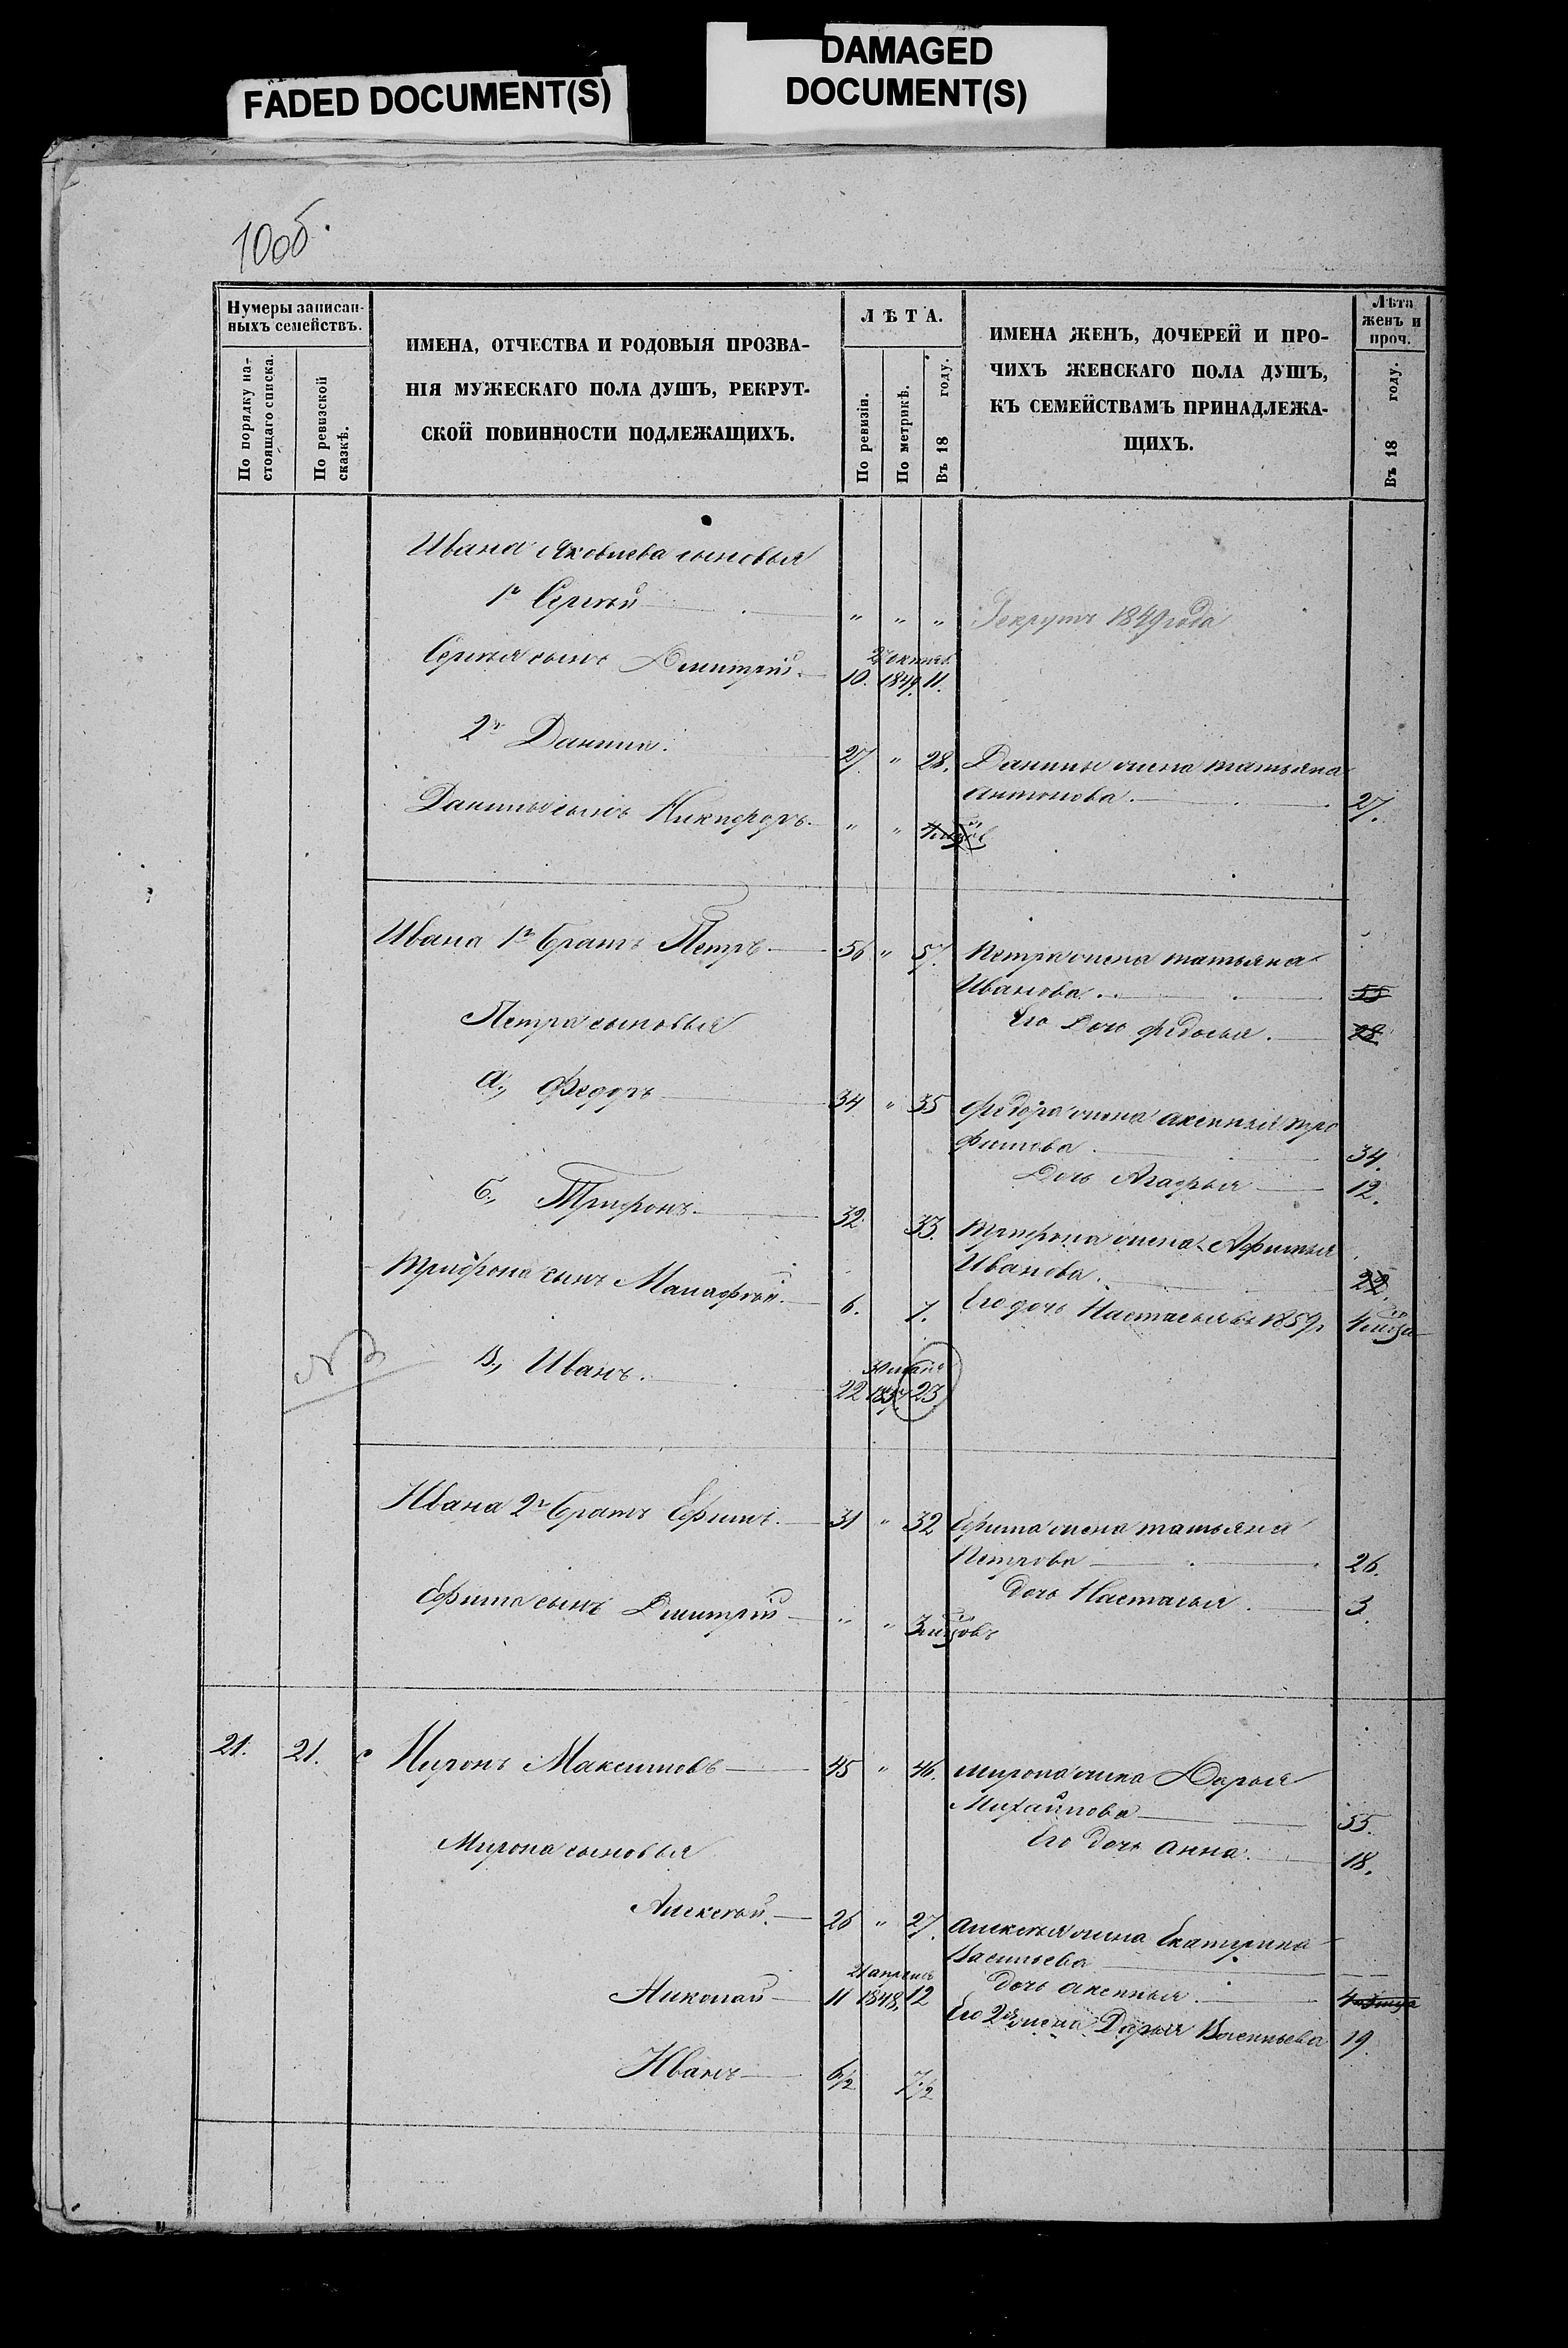 FADED DOCUMENT(S)
DAMAGED
DOCUMENT(S)
10об.
Нумеры записан-
ныхъ семействъ.
По порядку на-
стоящаго списка.
По ревизской
сказкѣ.
ИМЕНА, ОТЧЕСТВА И РОДОВЫЯ ПРОЗВА-
НІЯ МУЖЕСКАГО ПОЛА ДУШЪ, РЕКРУТ-
СКОЙ ПОВИННОСТИ ПОДЛЕЖАЩИХЪ.
ЛѢТА.
По ревизіи.
По метрикѣ.
Въ 18 году.
ИМЕНА ЖЕНЪ, ДОЧЕРЕЙ И ПРО-
ЧИХЪ ЖЕНСКАГО ПОЛА ДУШЪ,
КЪ СЕМЕЙСТВАМЪ ПРИНАДЛЕЖА-
ЩИХЪ.
Лѣта
женъ и
проч.
Въ 18 году.
Ивана Яковлева сыновья
1й Сергѣй " " " Рекрутъ 1849 года
Сергѣя сынъ Дмитрій. 10. октяб. 11.
2й Данила. 27. " 28. Данилы жена татьяна
антонова. 27.
Данилы сынъ Никифоръ " "
Ивана 1й братъ Петръ 56 " 57. Петра жена татьяна
Иванова. 55
Петра сыновья Его дочь федосья. 28
а., Федоръ 34 " 35 федора жена аксинья тро
фимова 34.
дочь Агафья 12.
б., Трифонъ 32. 33. трифона жена Афимья
Иванова. 22.
трифона сынъ Малафѣй. 6. 7. Его дочь Настасья въ 1859г
NB
В., Иванъ. 22 23
Ивана 2й братъ Ефимъ. 31 " 32 Ефима жена татьяна
Петрова 26.
Дочь Настасья. 3.
Ефима сынъ Дмитрій " " 3 мцовъ
21. 21. Миронъ Максимовъ 45 " 46. мирона жена Дарья
Михайлова 55.
Мирона сыновья Его дочь анна. 18.
Алексѣй. 26 " 27. алексѣя жена Екатерина
Васильева
21 апрѣль дочь аксинья.
Николай 11 1848. 12 Его 2я жена Дарья Васильева 19.
Иванъ 6/2 7/2